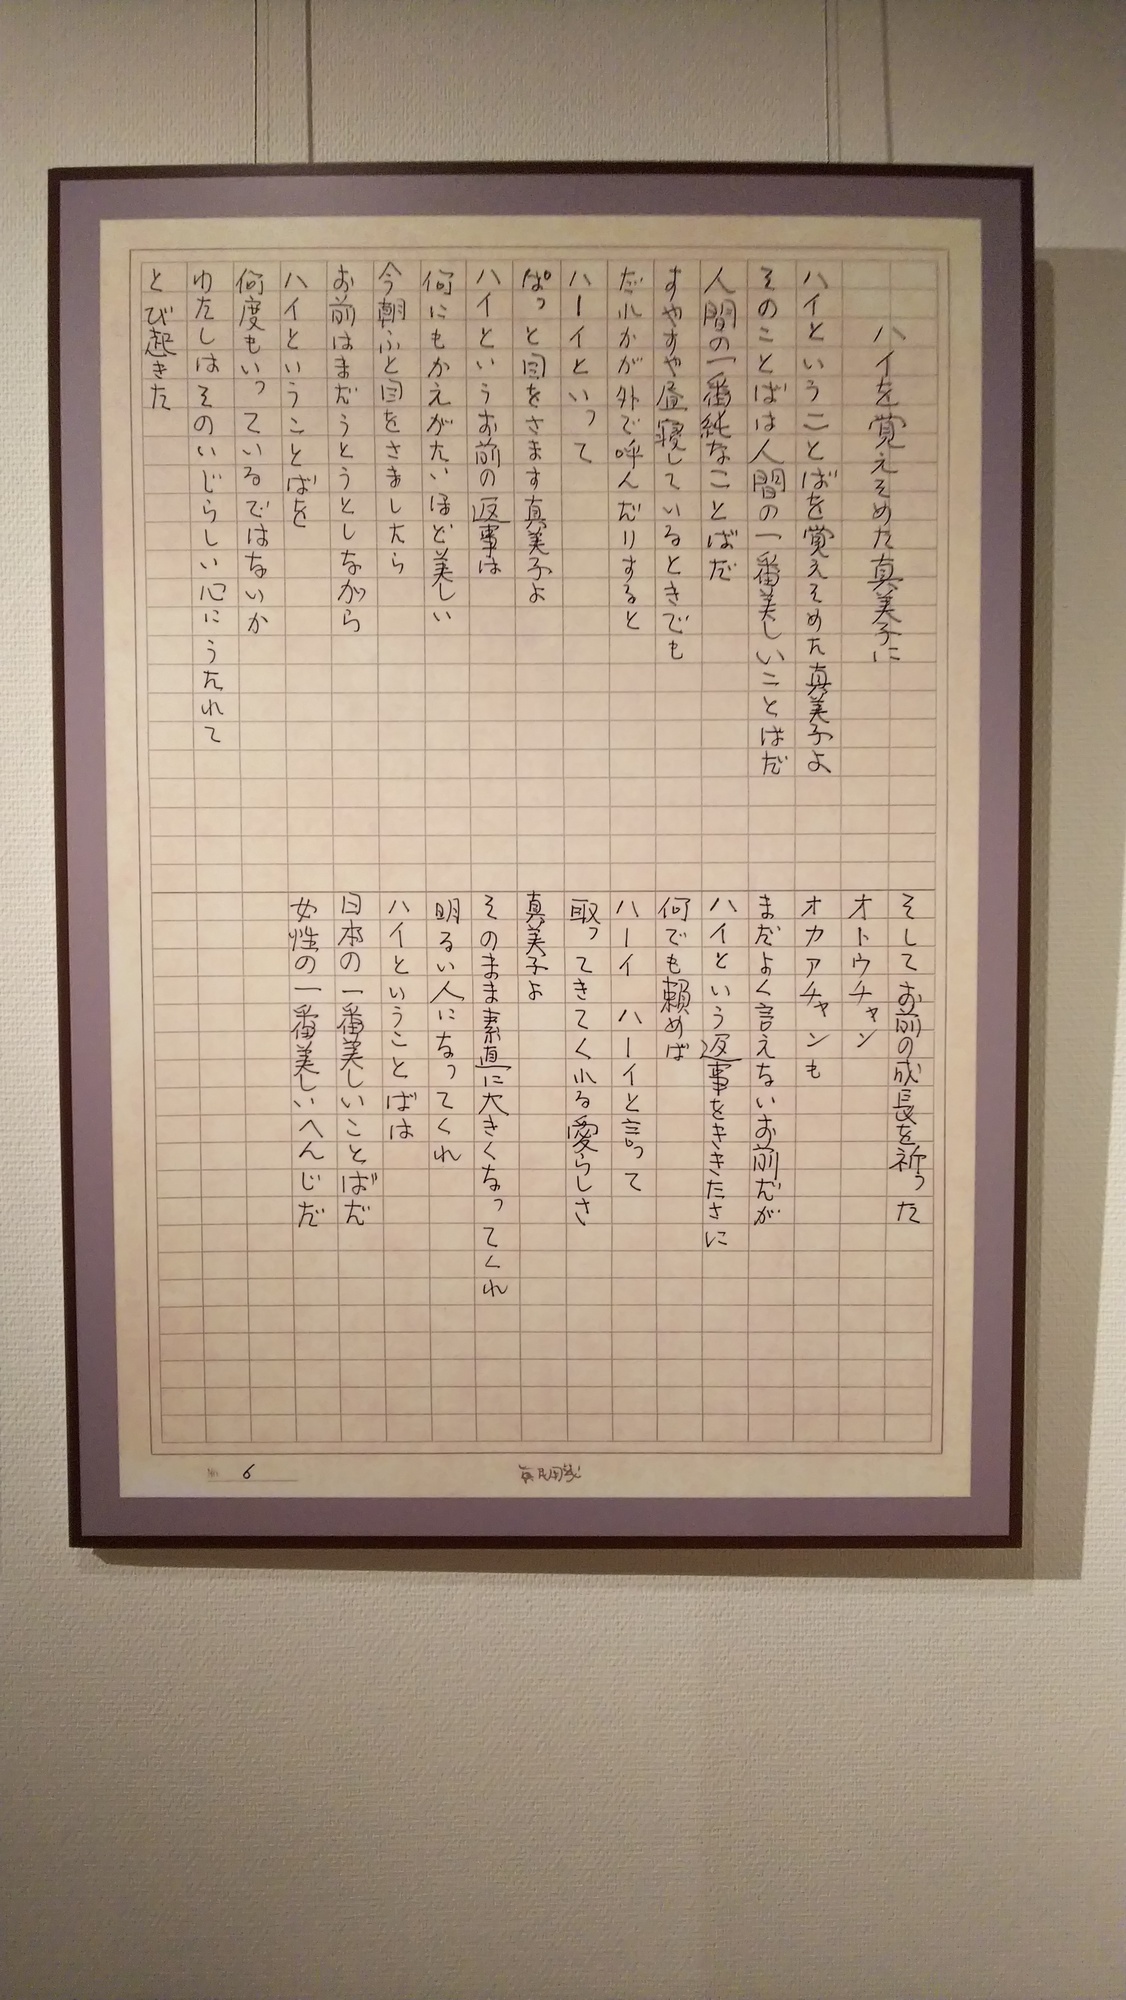 ハイを覚えそめた真美子に
ハイということばを覚えそめた真美子よ
そのことばは人間の一番美しいことばだ
人間の一番純なことばだ
すやすや昼寝しているときでも
だれかが外で呼んだりすると
ハーイといって
ぱっと目をさます真美子よ
ハイというお前の返事は
何にもかえがたいほど美しい
今朝ふと目をさましたら
お前はまだうとうとしながら
ハイということばを
何度もいっているではないか
わたしはそのいじらしい心にうたれて
とび起きた
そしてお前の成長を祈った
オトウチャン
オカアチャンも
まだよく言えないお前だが
ハイという返事をききたさに
何でも頼めば
ハーイ ハーイと言って
取ってきてくれる愛らしさ
真美子よ
そのまま素直に大きくなってくれ
明るい人になってくれ
ハイということばは
日本の一番美しいことばだ
女性の一番美しいへんじだ
No. 6